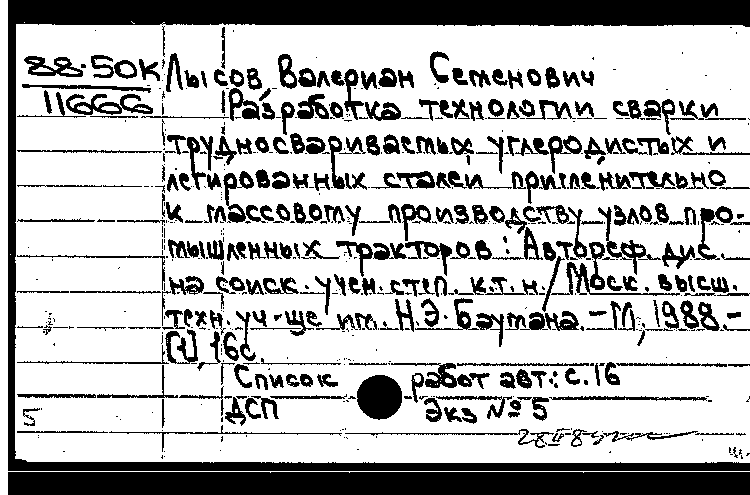 88-50К
11666
Лысов, Валериан Семенович
Разработка технологии сварки
трудносвариваемых углеродистых и
легированных сталей применительно
к массовому производству узлов про-
мышленных тракторов : Автореф. дис.
на соиск. учен. степ. к.т.н. / Моск. высш.
техн. уч-ще им. Н.Э. Баумана. – М., 1988. –
[1], 16с.
Список работ авт.: с. 16
ДСП Экз № 5
5